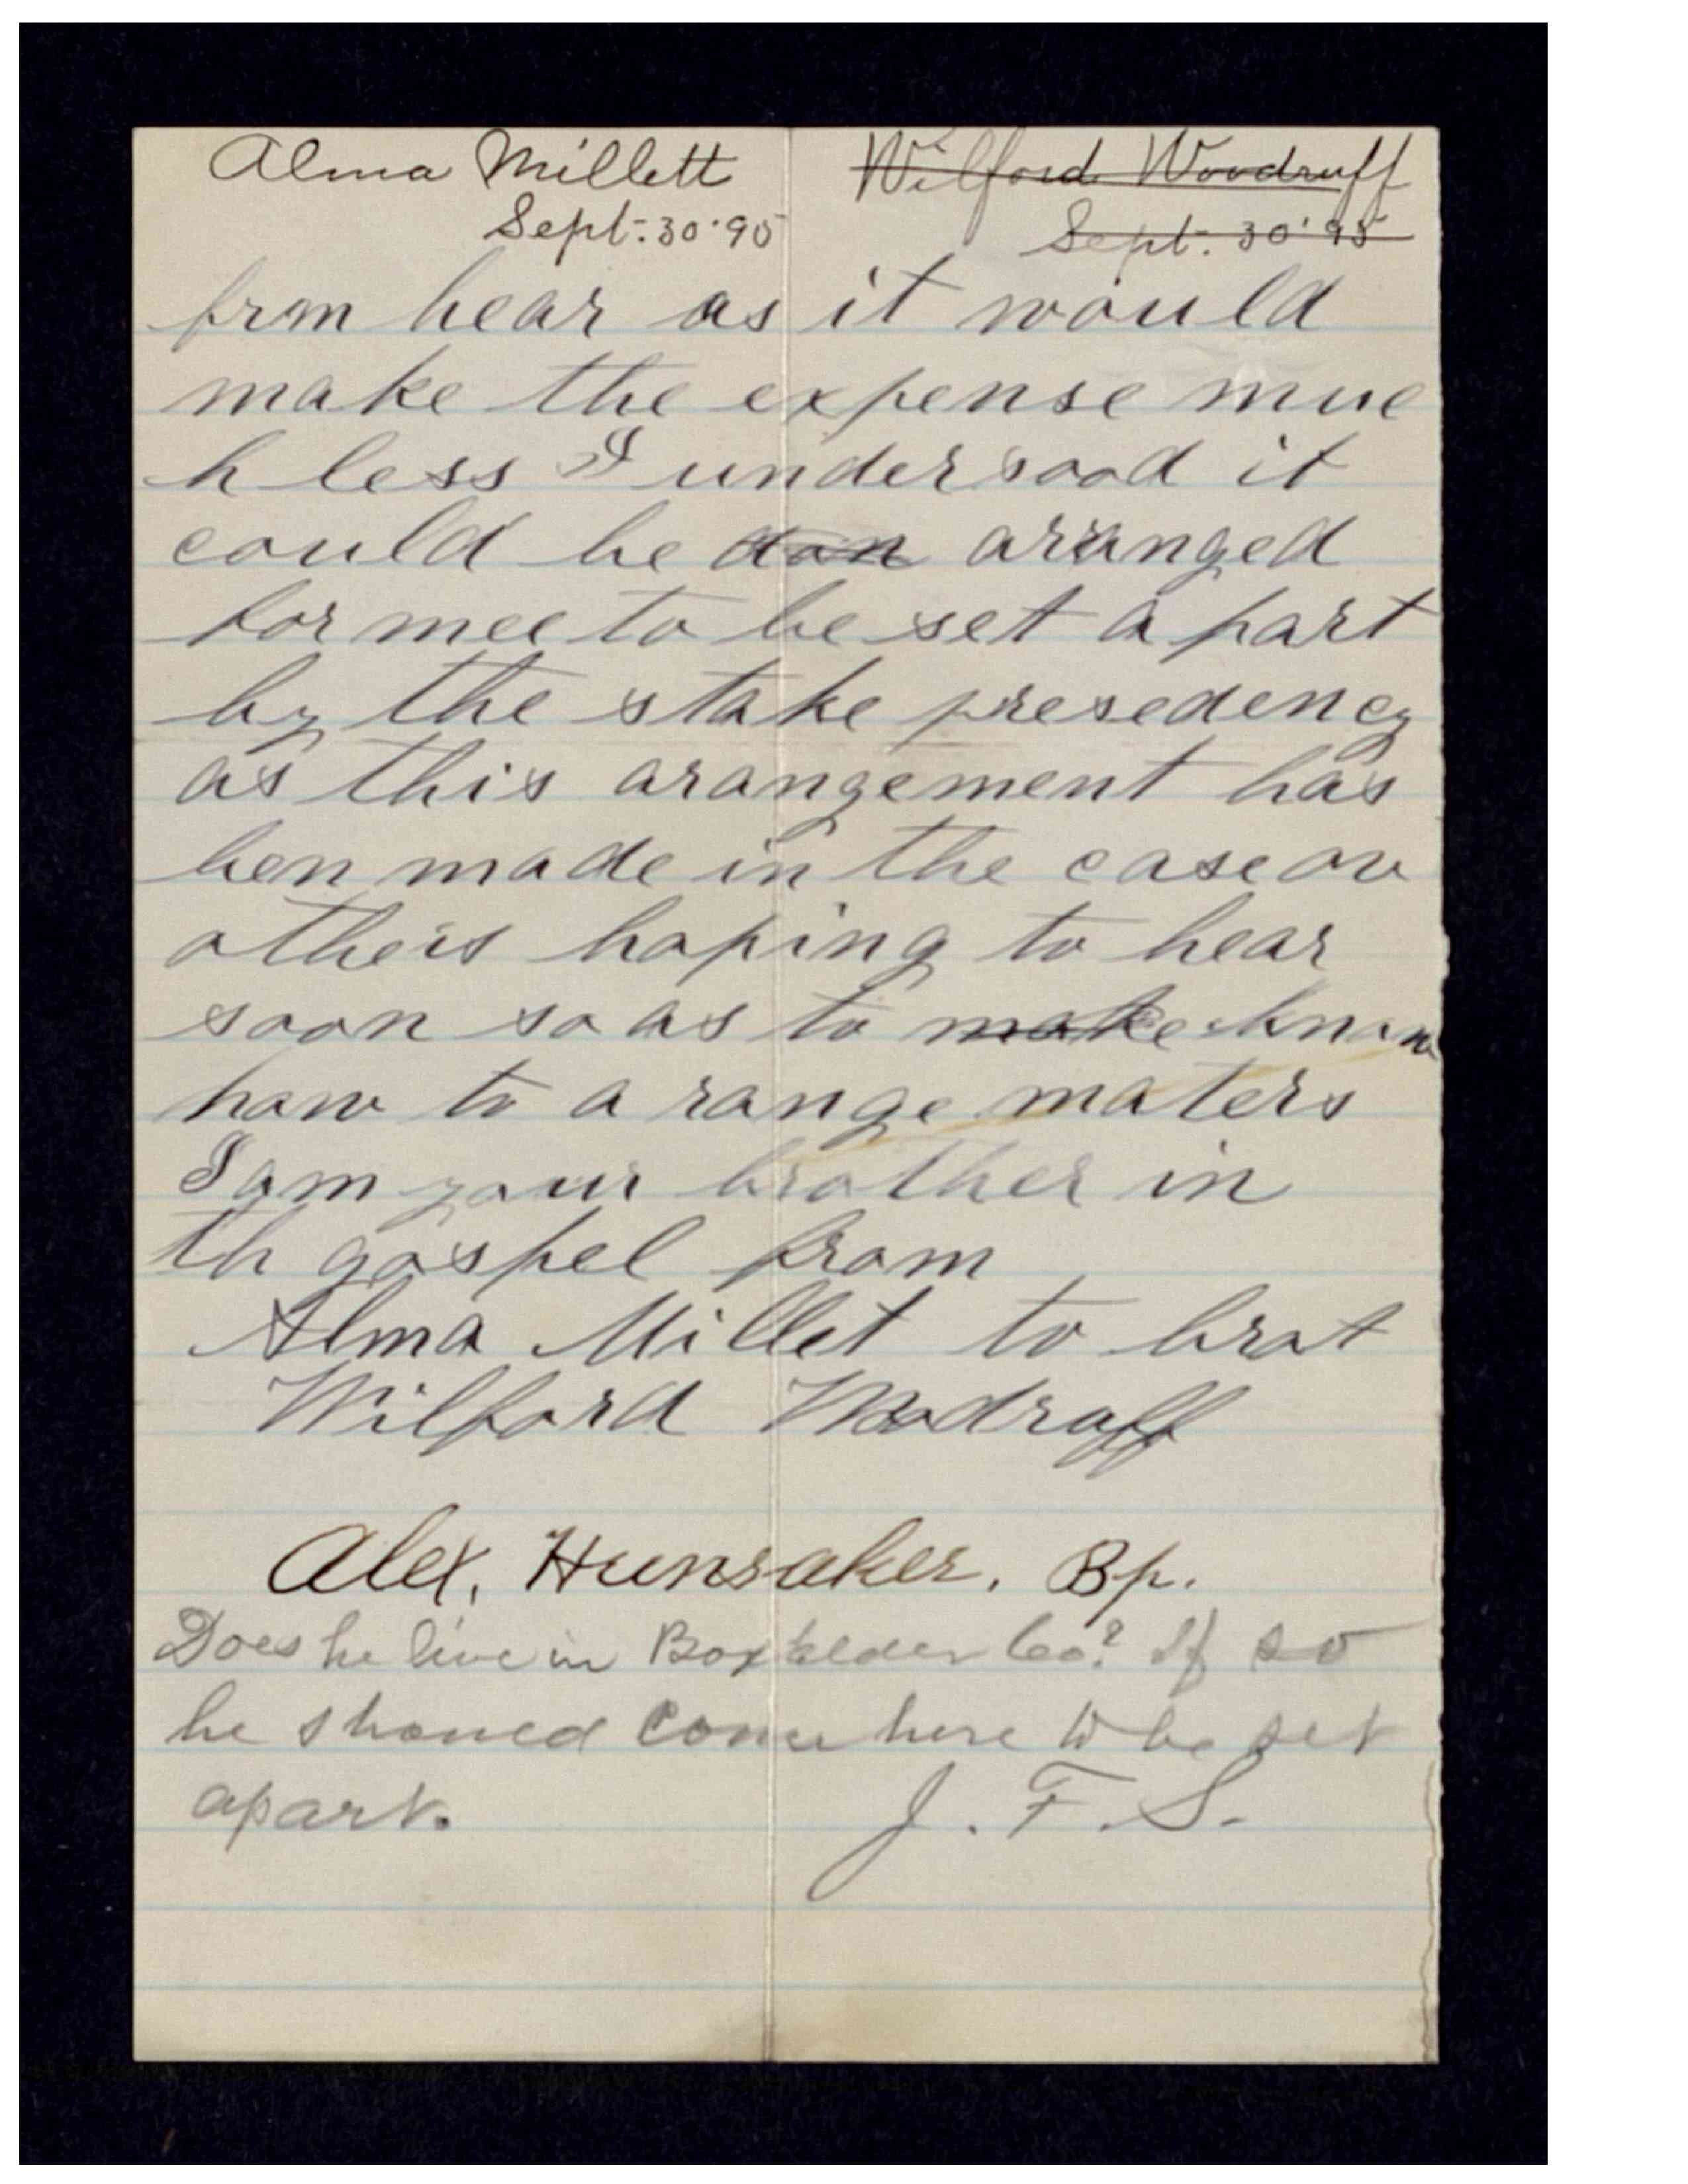 Alma Millett ~~Wilford Woodruff~~
Sept. 30 '95 ~~Sept. 30 '95~~
frm hear as it would
make the expense muc
h less I undersood it
could be ~~don~~ aranged
for mee to be set a part
by the stake presedency
as this arangement has
ben made in the case ov
others hoping to hear
soon so as to ~~make~~ know
how to a range maters
I am your brother in
th gospel from
Alma Millet to brot
Wilford Woodruff
Alex. Hunsaker. Bp.
Does he live in Box elder Co? If so
he should come here to be set
apart. J. F. S.